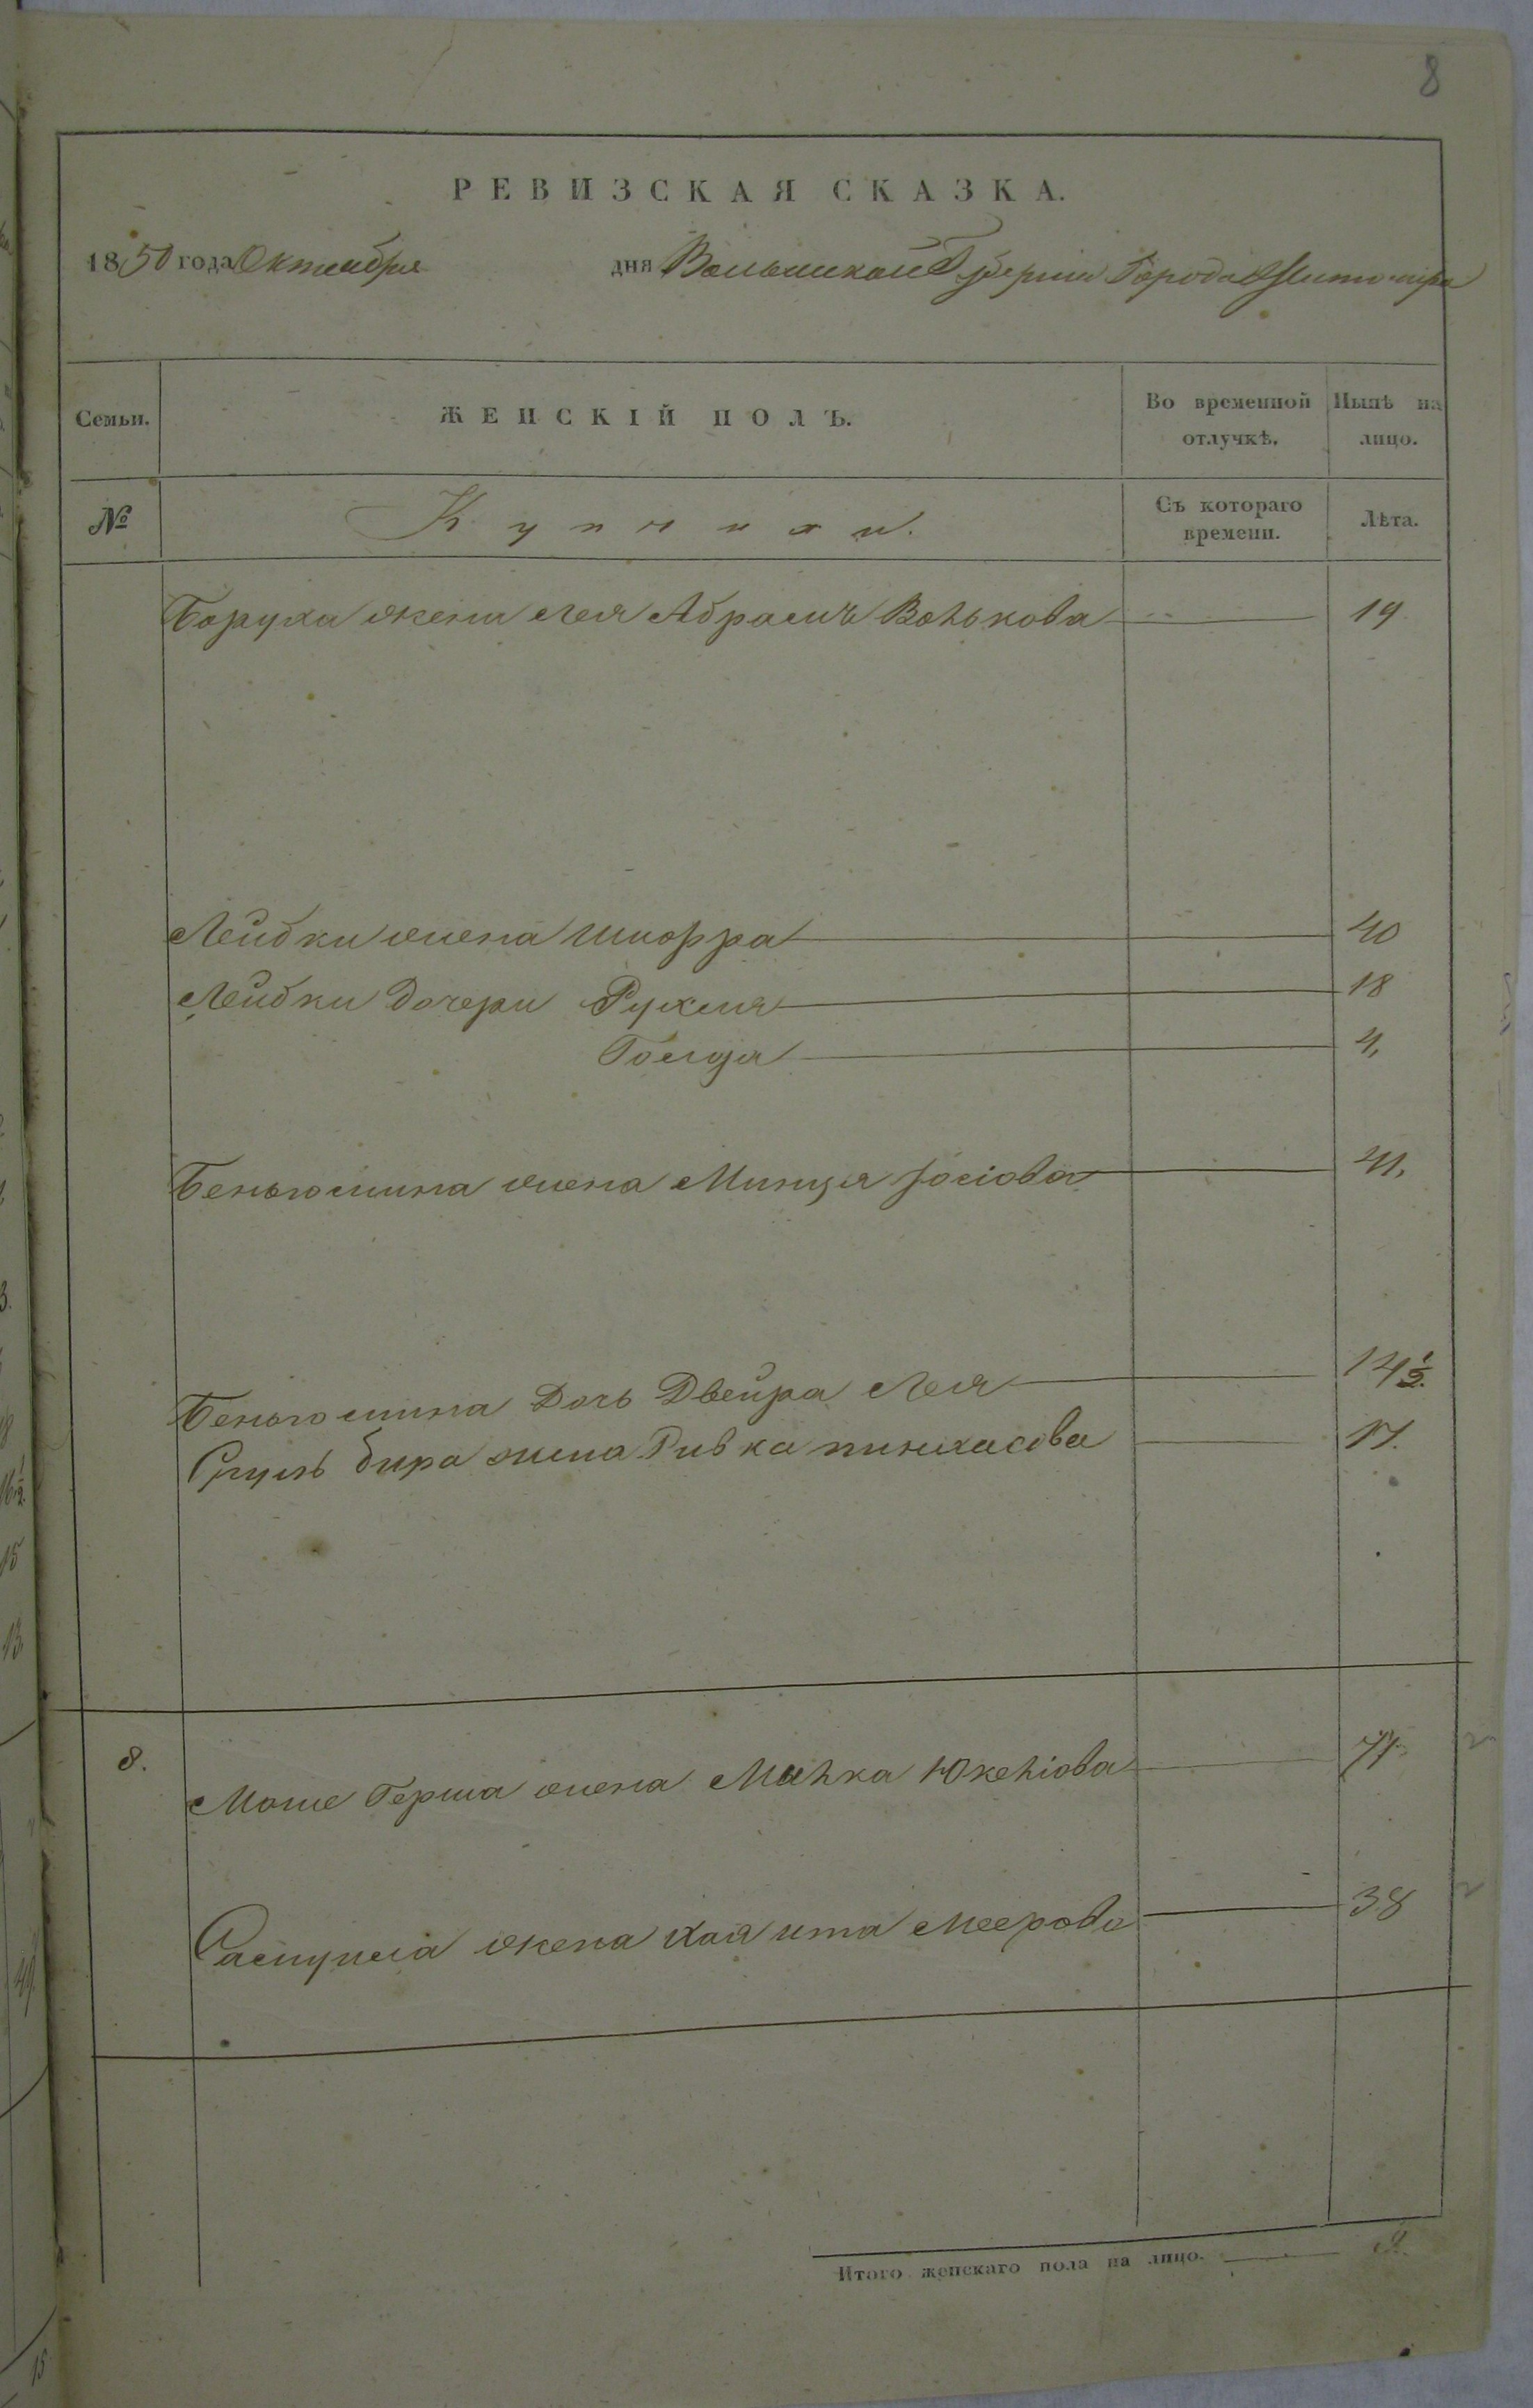 8
РЕВИЗСКАЯ СКАЗКА.
1850 года Октября дня Волынской Губернии Города Житомира
Семьи. ЖЕНСКІЙ ПОЛЪ. Во временной отлучкѣ. Нынѣ на лицо.
№ Купчихи. Съ котораго времени. Лѣта.
Боруха жена Лея Абрамъ Волькова 19
Лейбки жена Шифра 40
Лейбки дочери Рухля 18
Голда 4,
Беньюмина жена Минця Іосіова 41,
Беньюмина Дочь Двейра Лея 14½.
Сруль бира жена Ривка пинхасова 17.
8. Моше Герша жена Малка Юкеліова 77.
жена Хая ита Меерова 38
Итого женскаго пола на лицо. 9.